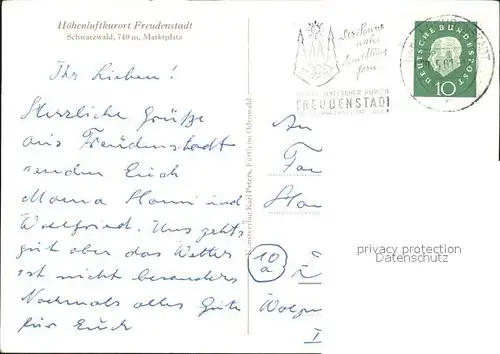 Höhenluftkurort Freudenstadt
Schwarzwald, 740 m, Marktplatz
Ihr Lieben!
Herzliche Grüße
aus Freudenstadt
senden Euch
Mama Hanni und
Wollfried. Uns geht's
gut aber das Wetter
ist nicht besonders
Nochmals alles Gute
für Euch
Kunstverlag Karl Peters, Fürth im Odenwald
Der Sonne
nahe
dem Alltag
fern
FREUDENSTADT
DEUTSCHE BUNDESPOST
10
An
Fa
10
a
privacy protection
Datenschutz